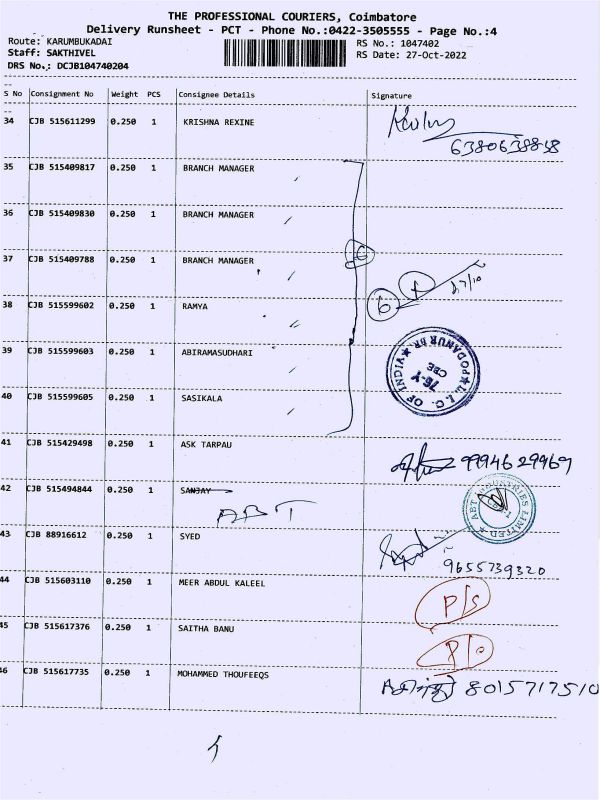 THE PROFESSIONAL COURIERS, Coimbatore
Delivery Runsheet - PCT - Phone No.:0422-3505555 - Page No.:4
Route: KARUMBUKADAI RS No.: 1047402
Staff: SAKTHIVEL RS Date: 27-Oct-2022
DRS No.: DCJB104740204
S No Consignment No Weight PCS Consignee Details Signature
34 CJB 515611299 0.250 1 KRISHNA REXINE
6380638838
35 CJB 515409817 0.250 1 BRANCH MANAGER
36 CJB 515409830 0.250 1 BRANCH MANAGER
37 CJB 515409788 0.250 1 BRANCH MANAGER
6 27/10
38 CJB 515599602 0.250 1 RAMYA
39 CJB 515599603 0.250 1 ABIRAMASUDHARI
L.I.C. OF INDIA PODANUR BR. 76-Y CBE
40 CJB 515599605 0.250 1 SASIKALA
41 CJB 515429498 0.250 1 ASK TARPAU
9994629969
42 CJB 515494844 0.250 1 SANJAY
ABT
ABT INDUSTRIES LIMITED
43 CJB 88916612 0.250 1 SYED
9655739320
44 CJB 515603110 0.250 1 MEER ABDUL KALEEL
P/S
45 CJB 515617376 0.250 1 SAITHA BANU
46 CJB 515617735 0.250 1 MOHAMMED THOUFEEQS
8015717510